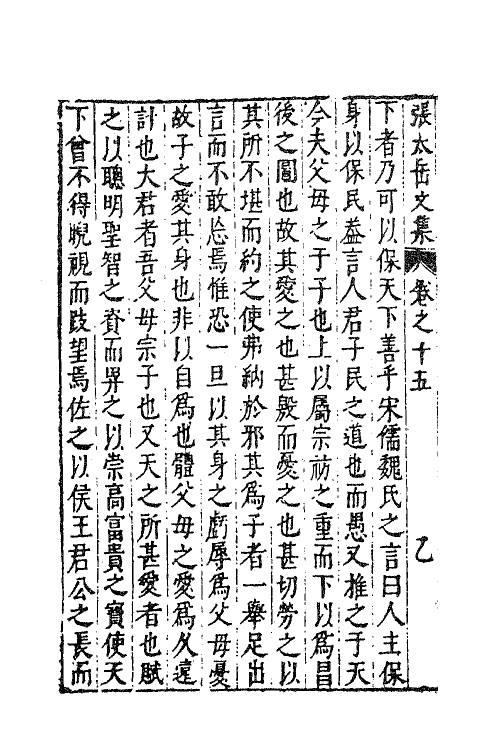 張太岳文集 卷之十五 乙
下者乃可以保天下善乎宋儒魏氏之言曰人主保
身以保民葢言人君子民之道也而愚又推之于天
今夫父毋之于子也上以屬宗祊之重而下以爲昌
後之圖也故其愛之也甚殷而憂之也甚切勞之以
其所不堪而約之使弗納於邪其爲子者一舉足出
言而不敢忩焉惟恐一旦以其身之虧辱爲父毋憂
故子之愛其身也非以自爲也體父毋之愛爲久遠
計也大君者吾父毋宗子也又天之所甚愛者也賦
之以聰明聖智之資而畀之以崇高富貴之寶使天
下曾不得睨視而跂望焉佐之以侯王君公之長而